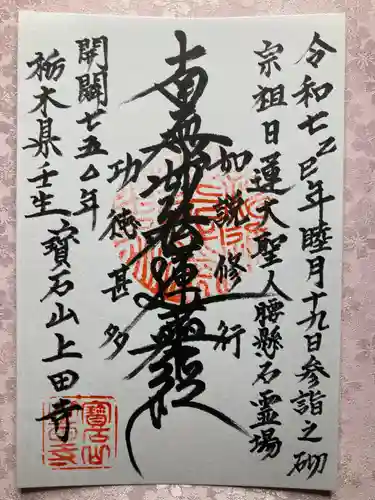 令和七乙巳年睦月十九日参詣之砌
宗祖日蓮大聖人腰懸石霊場
如説修行
南無妙法蓮華経
功徳甚多
開闢七五〇年
栃木県壬生寶石山上田寺